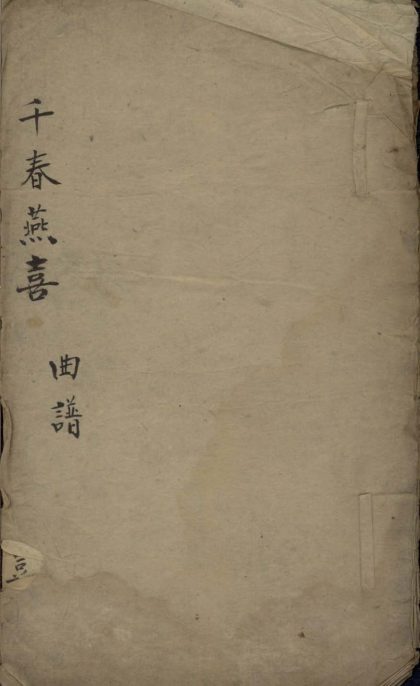 千春燕喜
曲譜